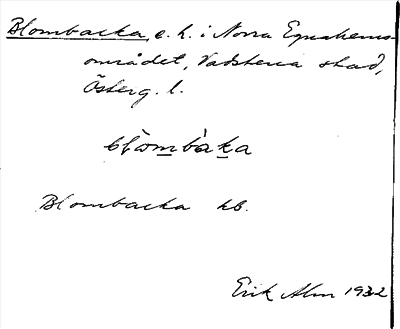 Blombacka, e. h. i Norra Equahems-
området, Vadstena stad,
Österg. l.
blòmbàka
Blombacka kb.
Erik Alm 1932